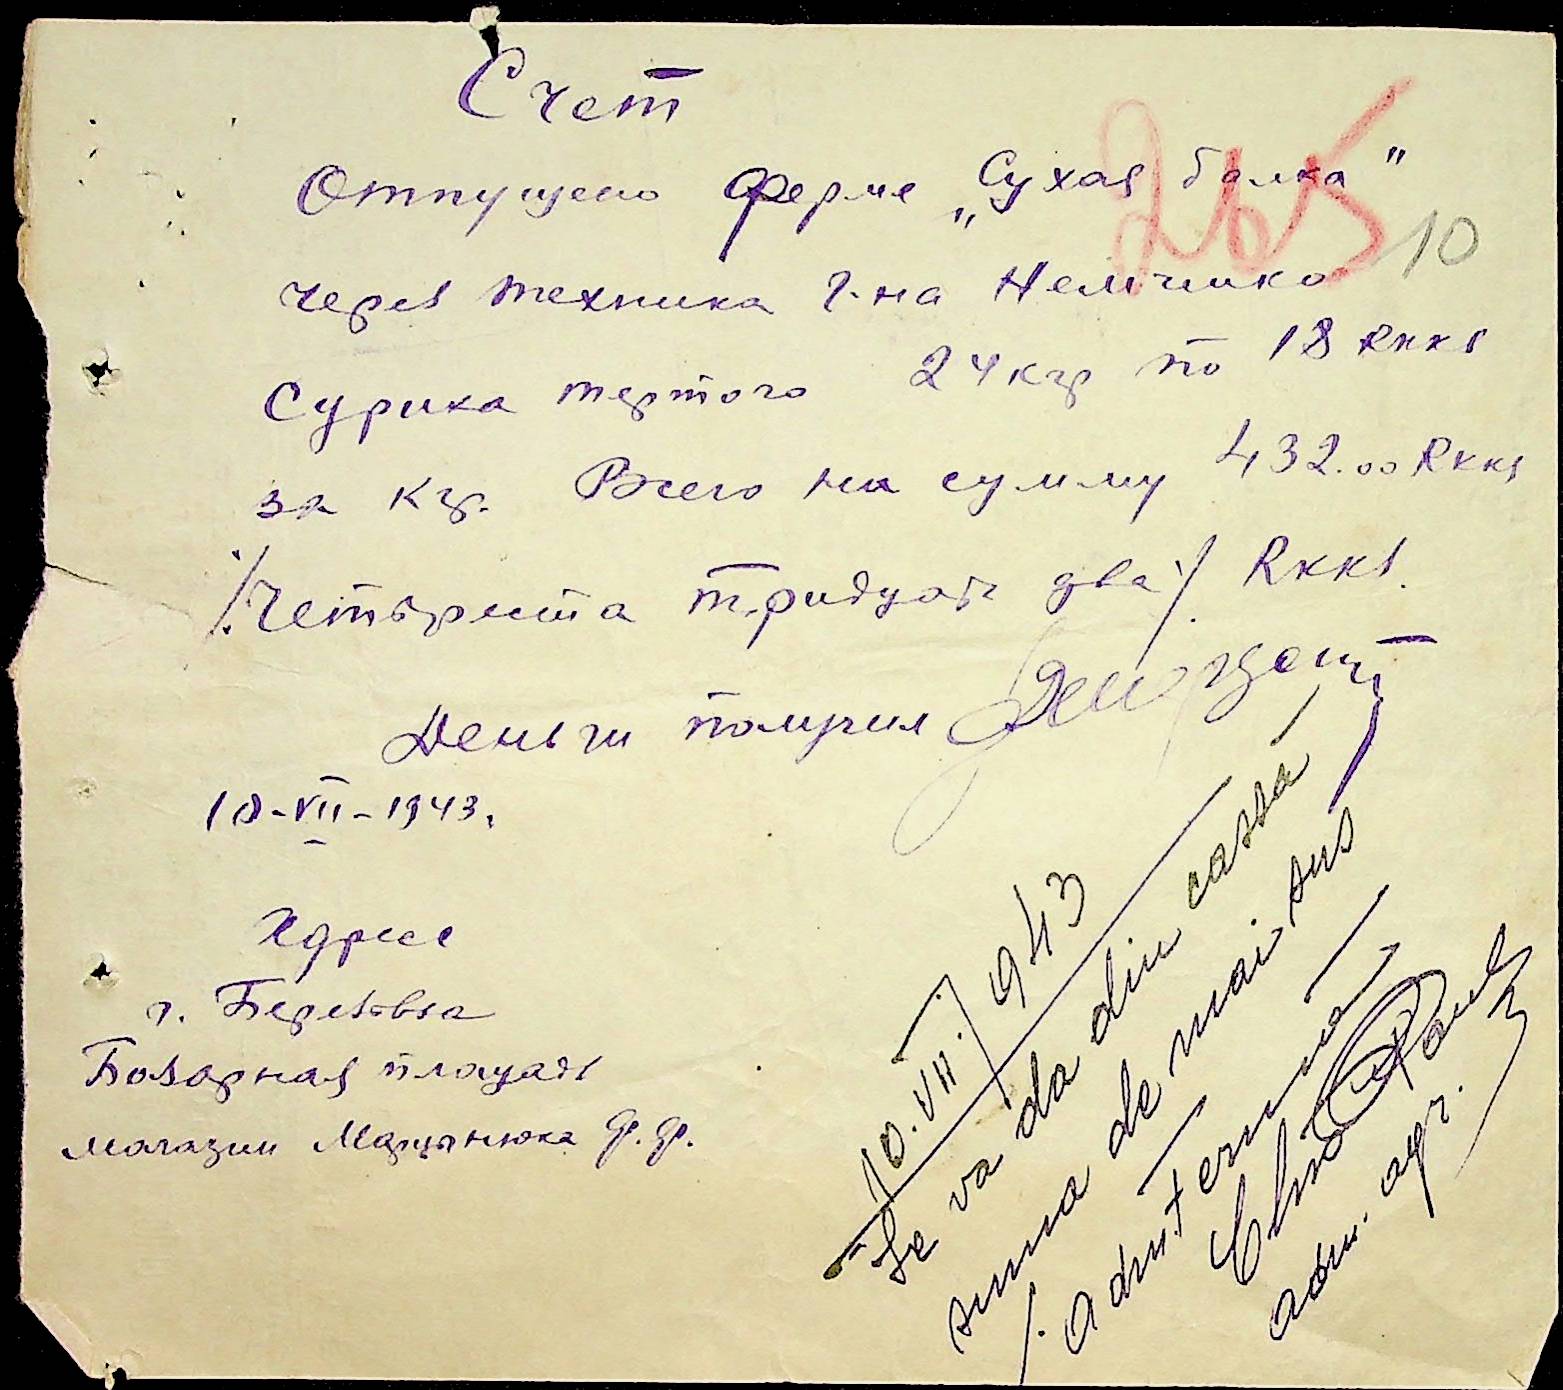 Счет
Отпущено ферме „Сухая балка"
265
10
через техника г-на Немчинко
Сурика тертого 24 кгр по 18 RKKS
за кгр. Всего на сумму 432.00 RKKS
/.Четыреста тридцать два/. RKKS.
Деньги получил
10-VII-1943.
Адрес
г. Березовка
Базарная площадь
магазин Марцынюка Ф.Ф.
10.VII.1943
Se va da din cassă
suma de mai sus
/. Adm. Fermei
Paul
adm. agr.